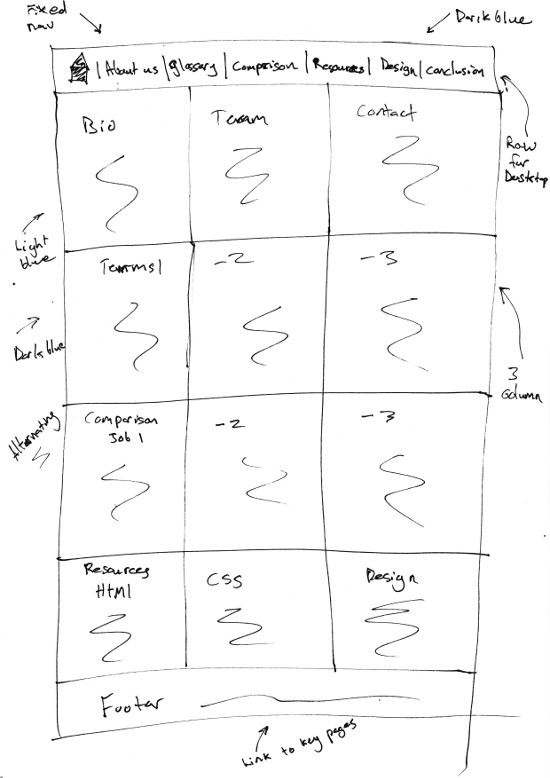 Fixed
nav
Dark blue
| About us | Glossary | Comparison | Resources | Design | Conclusion
Row
for
Desktop
Bio
Team
Contact
Light
blue
Terms 1
- 2
- 3
Dark blue
3
Column
Alternating
Comparison
Job 1
- 2
- 3
Resources
Html
CSS
Design
Footer
Link to key pages